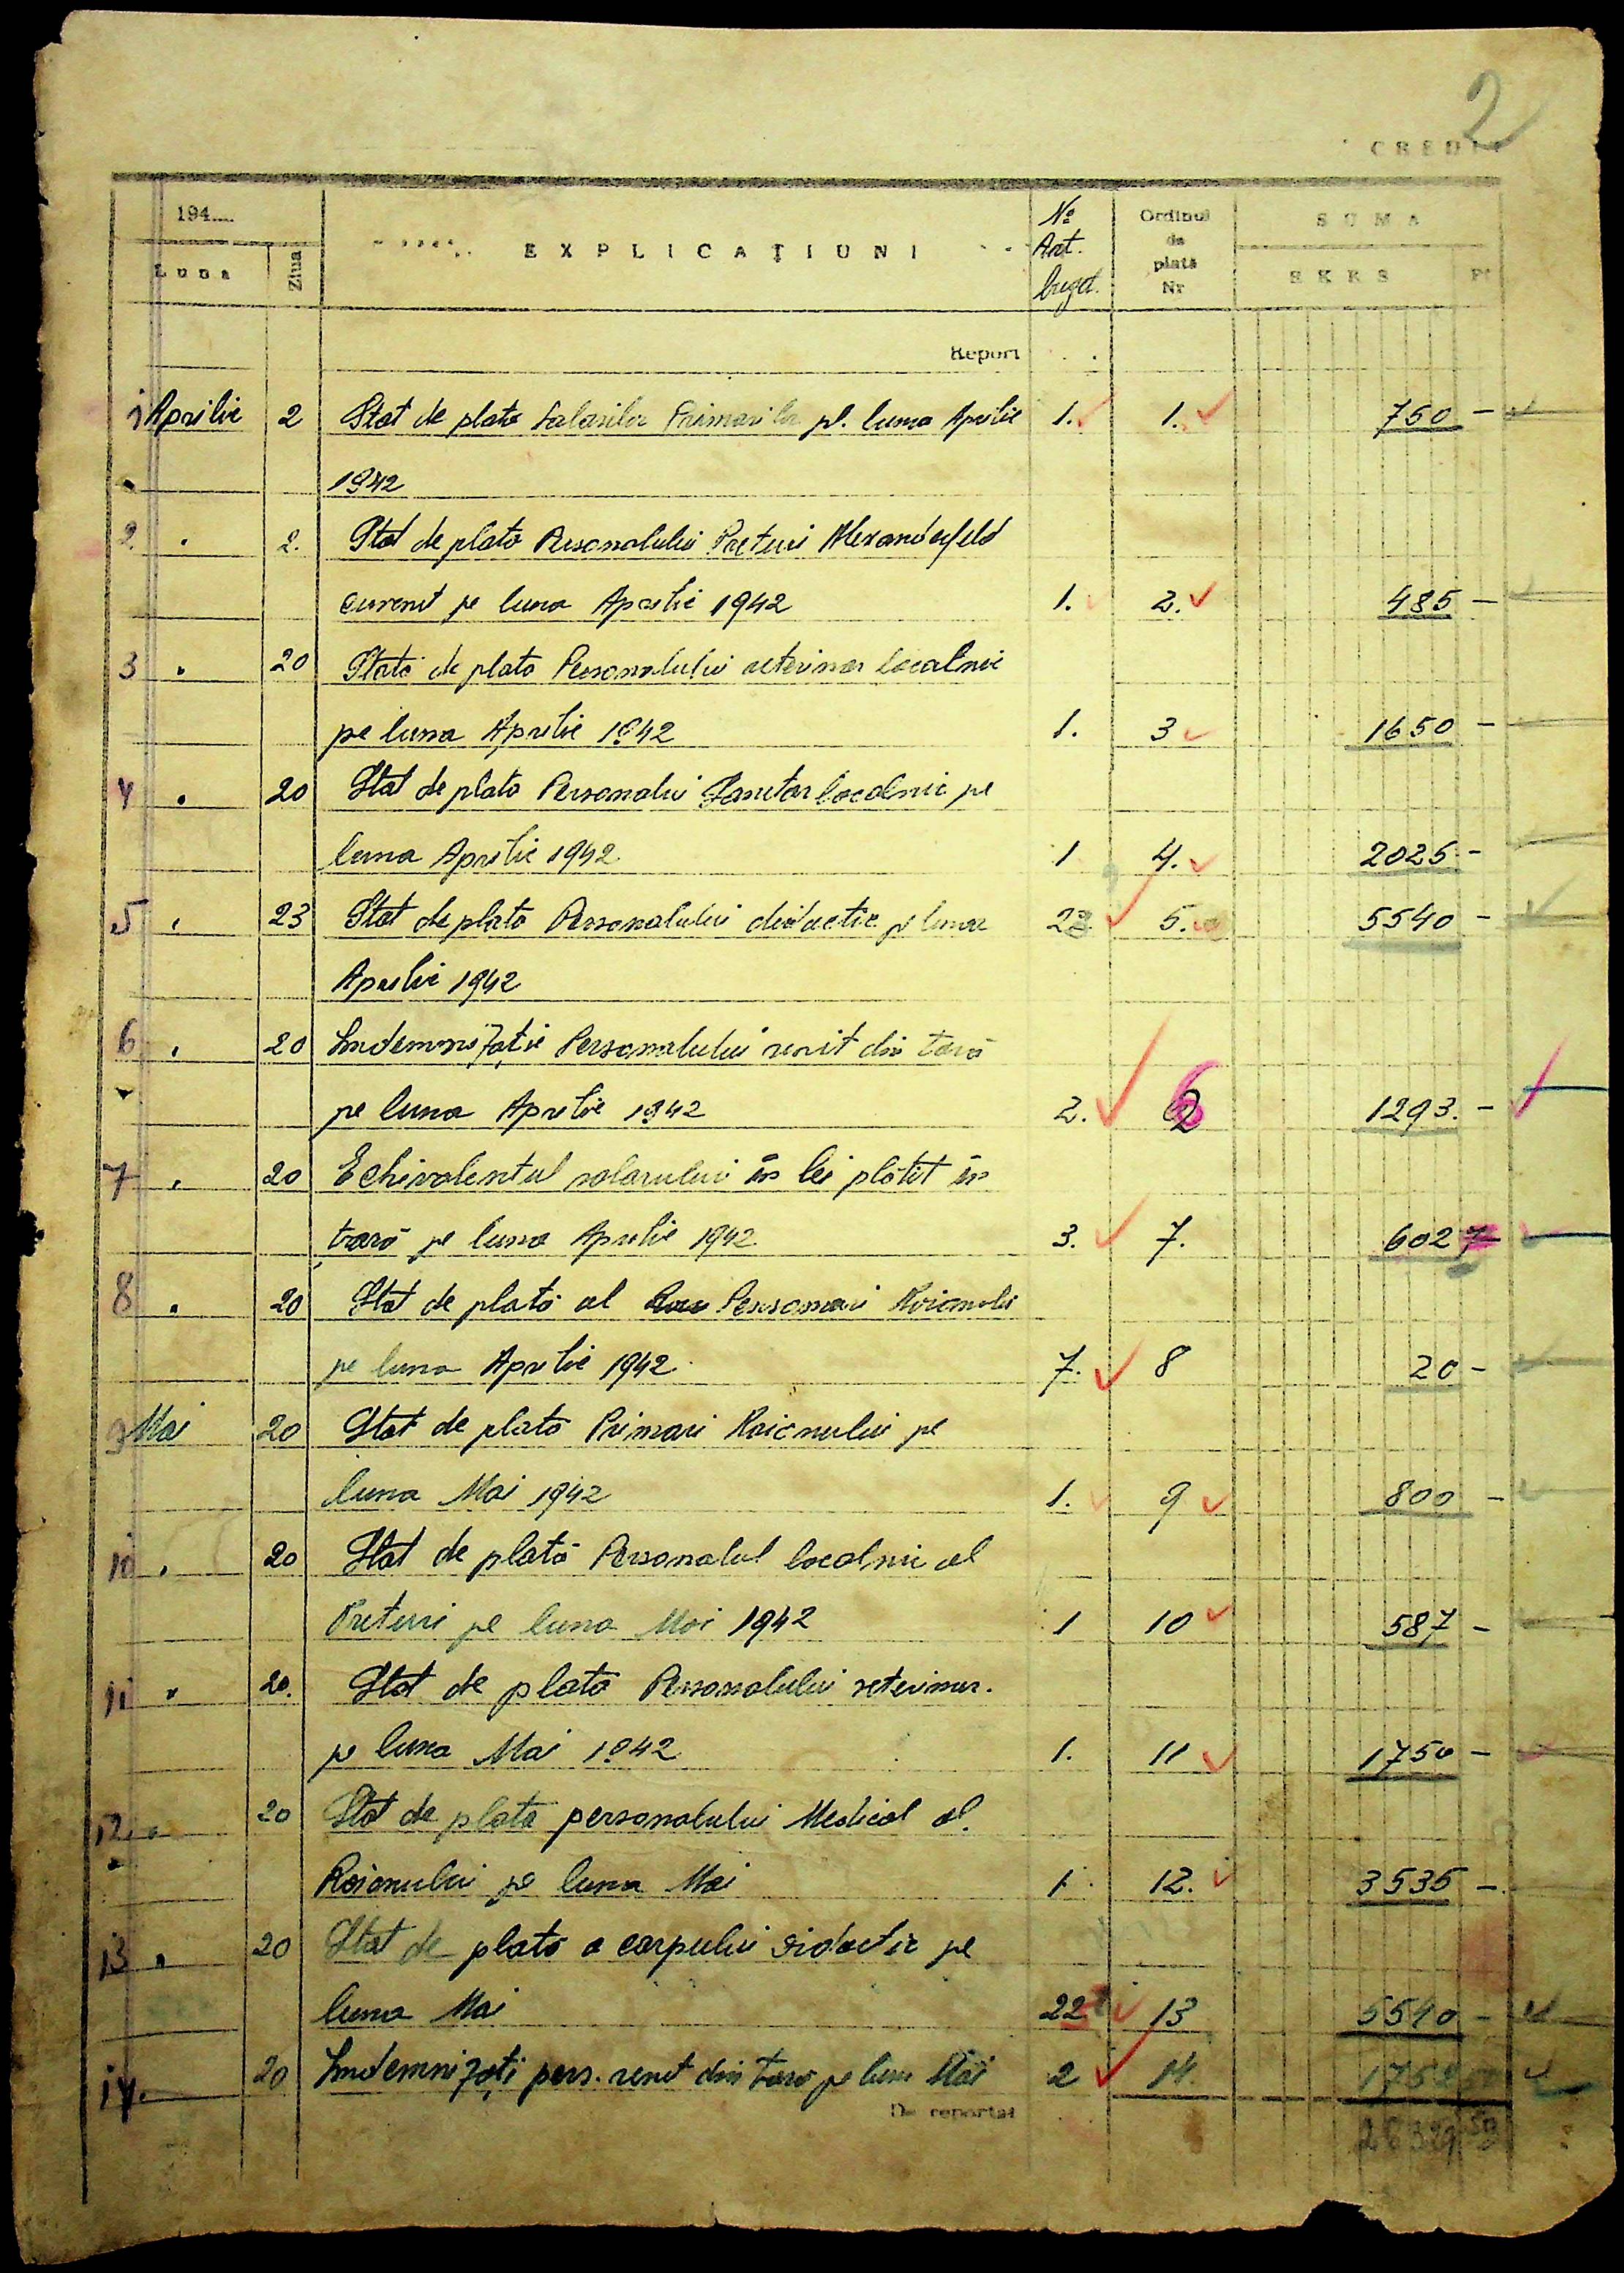 2
CREDIT
194.....
Luna
Ziua
EXPLICAȚIUNI
No
Art.
bugd.
Ordinul
de
plată
Nr
SUMA
RKKS
Pf
Report
1 Aprilie 2 Stat de plata Salariilor Primarilor pe. luna Aprilie 1. 1. 750 -
1942
2 " 2. Stat de plată Personalului Preturi Alexanderfeld
curent pe luna Aprilie 1942 1. 2. 485 -
3 " 20 Stat de plata Personalului veterinar localnic
pe luna Aprilie 1942 1. 3 1650 -
4 " 20 Stat de plata Personalui Sanitar localnic pe
luna Aprilie 1942 1 4. 2025 -
5 " 23 Stat de plata Personalului didactic pe luna 5. 5540 -
Aprilie 1942
6 " 20 Indemnizație Personalului venit din țară
pe luna Aprilie 1942 2. 6 1293. -
7 " 20 Echivalentul salarului în lei plătit în
țară pe luna Aprilie 1942 3. 7. 6027
8 " 20 Stat de plată al
pe luna Aprilie 1942 7. 8 20 -
9 Mai 20 Stat de plată Primari Raionului pe
luna Mai 1942 1. 9 800 -
10 " 20 Stat de plată Personalul localnic al
Preturi pe luna Mai 1942 1 10 587 -
11 " 20. Stat de plata Personalului veterinar.
pe luna Mai 1942 1. 11 1750 -
12 " 20 Stat de plata personalului Medical al.
Raionului pe luna Mai 1 12. 3535 -
13 " 20 Stat de plată a corpului didactic pe
luna Mai 22 13 5540 -
14. 20 Indemnizați pers. venit din țară pe luna Mai 2 14.
De reportat